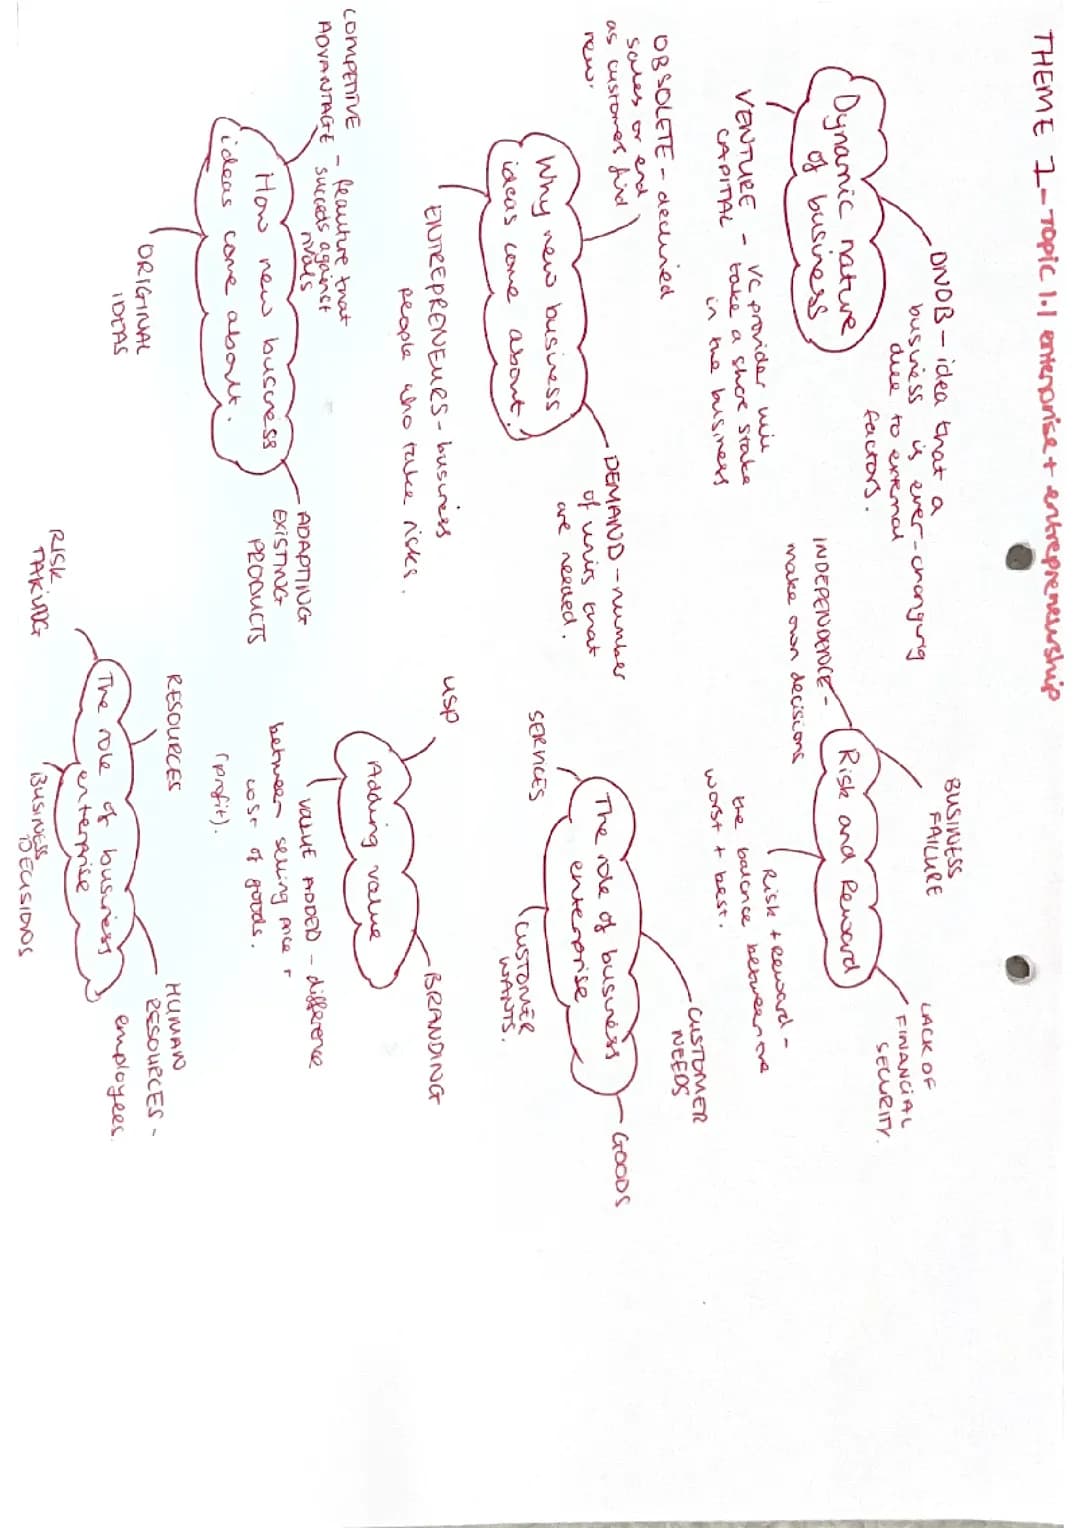 THEME 1 - Topic 1.1 enterprise + entrepreneurship
Dynamic nature
of business
DNOB - idea that a
business is ever-changing
due to external
factors.
VENTURE - VC provider will
CAPITAL take a share stake
in the business
OBSOLETE - declined
sales or end
as customers find
new.
Why new business
ideas come about.
DEMAND - number
of units that
are needed.
ENTREPRENEURS - business
people who take risks.
COMPETITIVE
ADVANTAGE - feauture that
succeds against
rivals
How new business
ideas come about.
ORIGINAL
IDEAS
ADAPTING
EXISTING
PRODUCTS
BUSINESS
FAILURE
INDEPENDENCE -
make own decisions
Risk and Reward
LACK OF
FINANCIAL
SECURITY.
Risk + reward -
the balance between the
worst + best.
The role of business
enterprise
CUSTOMER
NEEDS
GOODS
SERVICES
CUSTOMER
WANTS.
USP
Adding value
BRANDING
VALUE ADDED - difference
between selling price +
cost of goods.
(profit).
RISK
TAKING
RESOURCES
The role of business
enterprise
BUSINESS
DECISIONS
HUMAN
RESOURCES -
employees.